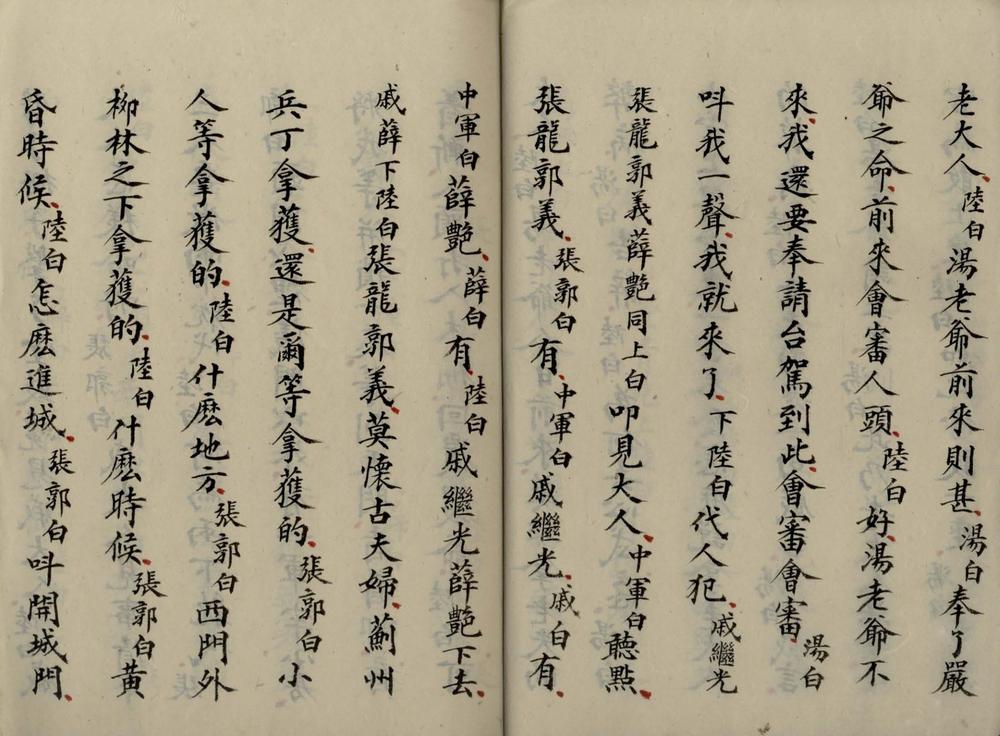 老大人陸白湯老爺前來則甚湯白奉了嚴
爺之命前來會審人頭陸白好湯老爺不
來我還要奉請台駕到此會審會審湯白
呌我一聲我就來了下陸白代人犯戚繼光
張龍郭義薛艷同上白叩見大人中軍白聽點
張龍郭義張郭白有中軍白戚繼光戚白有
中軍白薛艷薛白有陸白戚繼光薛艷下去
戚薛下陸白張龍郭義莫懷古夫婦薊州
兵丁拿獲還是爾等拿獲的張郭白小
人等拿獲的陸白什麽地方張郭白西門外
柳林之下拿獲的陸白什麽時候張郭白黃
昏時候陸白怎麽進城張郭白呌開城門